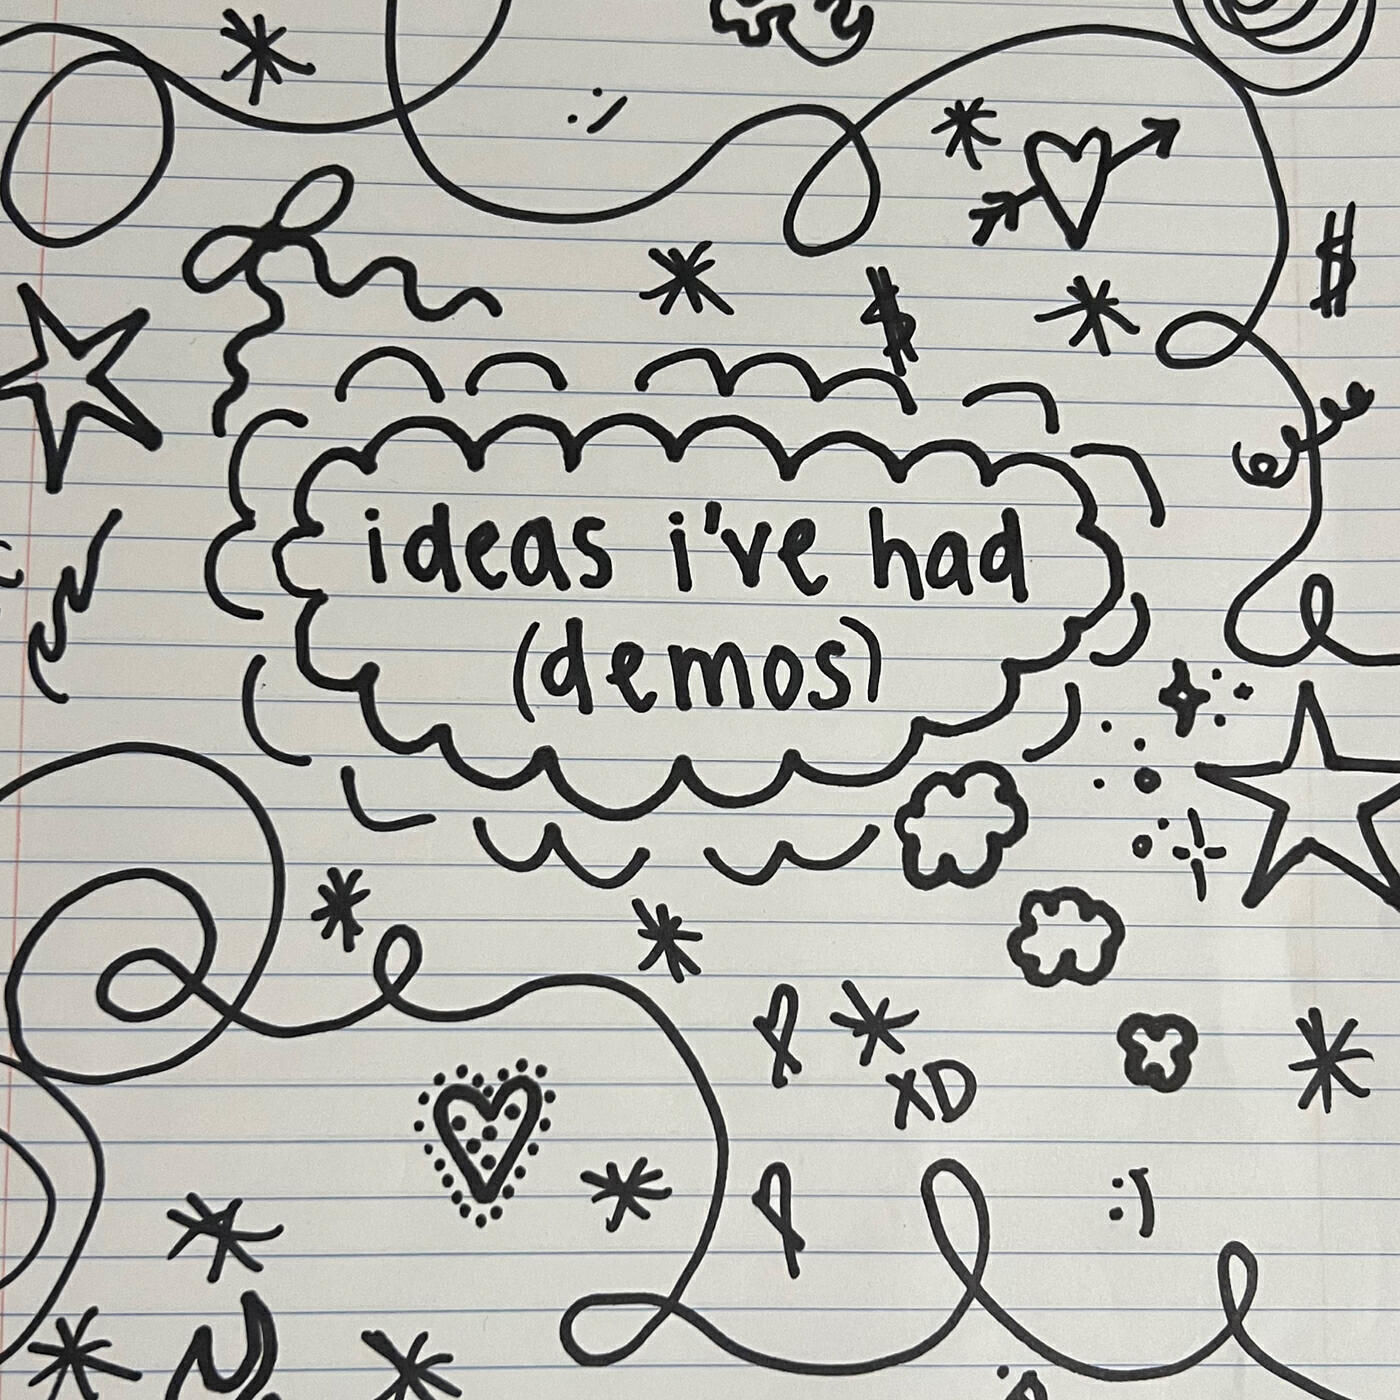 :)
$
$
ideas i've had
(demos)
XD
:)